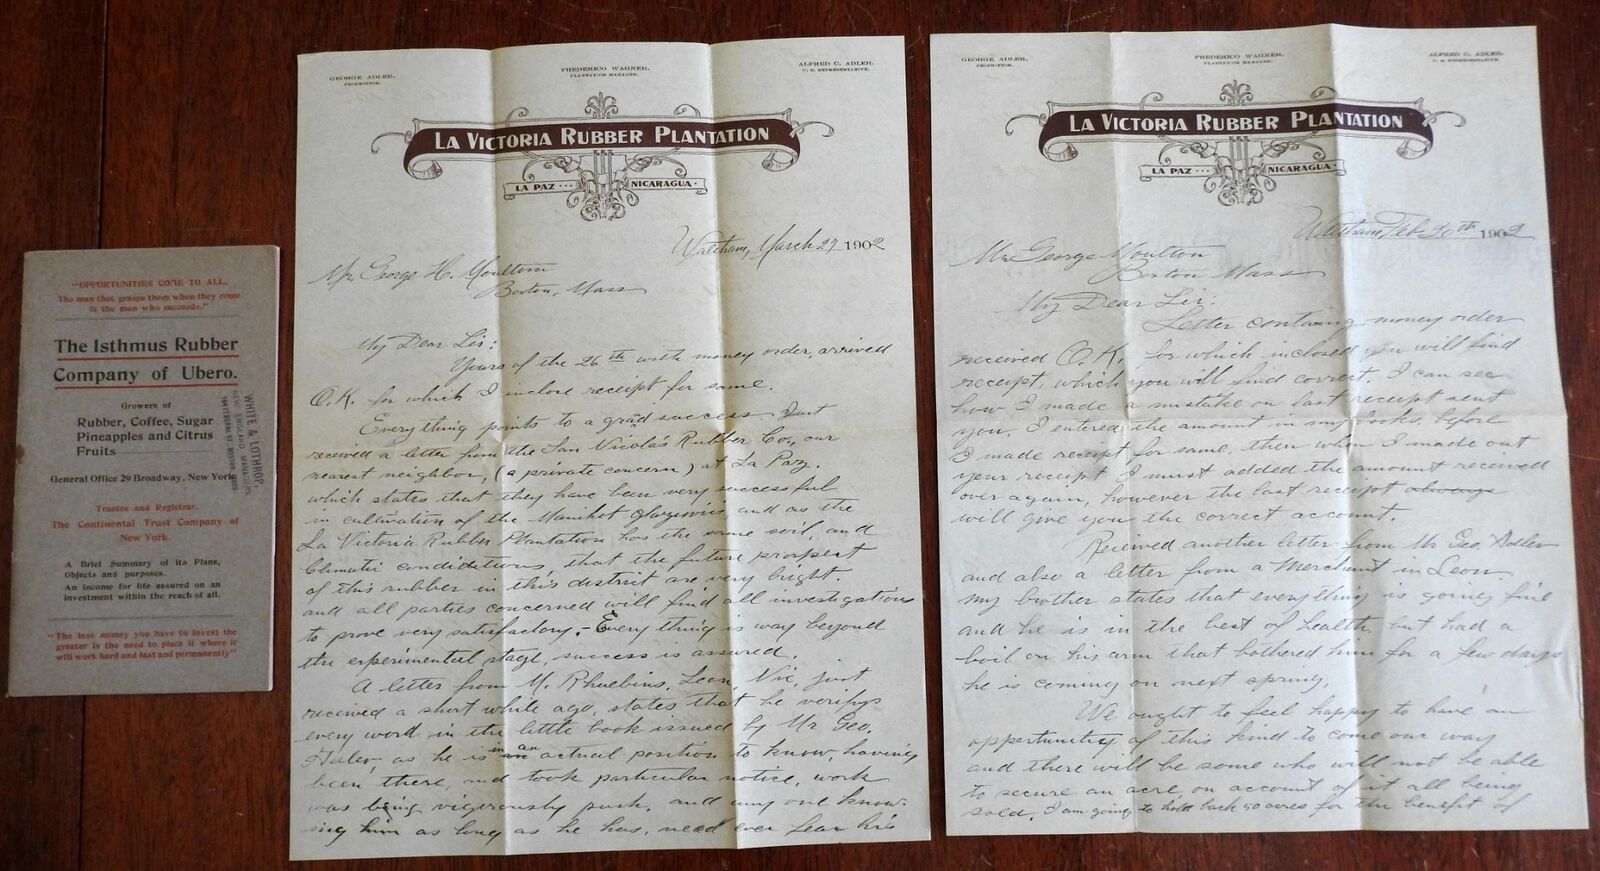 "OPPORTUNITIES COME TO ALL.
The man that grasps them when they come
is the man who succeeds."
The Isthmus Rubber
Company of Ubero.
Growers of
Rubber, Coffee, Sugar
Pineapples and Citrus
Fruits
General Office 29 Broadway, New York
WHITE & LOTHROP,
NEW ENGLAND MANAGERS,
Trustee and Registrar.
The Continental Trust Company of
New York.
A Brief Summary of its Plans,
Objects and purposes.
An income for life assured on an
investment within the reach of all.
"The less money you have to invest the
greater is the need to place it where it
will work hard and fast and permanently"
GEORGE ADLER,
PROPRIETOR.
FREDERICO WAGNER,
PLANTATION MANAGER.
ALFRED C. ADLER,
U. S. REPRESENTATIVE.
LA VICTORIA RUBBER PLANTATION
LA PAZ ... NICARAGUA.
Waltham, March 27 1902
Mr George H. Moulton
Boston, Mass
My Dear Sir:
Yours of the 26th with money order, arrived
O.K. for which I inclose receipt for same.
Everything points to a grand success. Just
received a letter from the San Nicolas Rubber Co., our
nearest neighbor, (a private concern) at La Paz.
which states that they have been very successful
in cultivation of the Manihot Glaziovii and as the
La Victoria Rubber Plantation has the same soil, and
climatic condiditions, that the future prospect
of this rubber in this district are very bright.
and all parties concerned will find all investigation
to prove very satisfactory. - Every thing is way beyond
the experimental stage, success is assured.
A letter from M. Leon, Nic, just
received a short while ago, states that he verifys
every word in the little book issued by Mr Geo.
Adler, as he is in an actual position to know, having
been there, and took particular notice, work
was being vigerously push, and any one know-
ing him as long as he has, need ever fear his
GEORGE ADLER,
PROPRIETOR.
FREDERICO WAGNER,
PLANTATION MANAGER.
ALFRED C. ADLER,
U. S. REPRESENTATIVE.
LA VICTORIA RUBBER PLANTATION
LA PAZ ... NICARAGUA.
Waltham, Feb 20th 1902
Mr George Moulton
Boston Mass
My Dear Sir:
Letter containing money order
received O.K. for which inclosed you will find
receipt, which you will find correct. I can see
how I made a mistake on last receipt sent
you. I entered the amount in my books before
I made receipt for same, then when I made out
your receipt I must added the amount received
over again, however the last receipt always
will give you the correct account.
Recieved another letter from Mr Geo. Adler
and also a letter from a Merchant in Leon,
my brother states that everything is going fine
and he is in the best of health, but had a
boil on his arm that bothered him for a few days
he is coming on next spring.
We ought to feel happy to have an
opportunity of this kind to come our way
and there will be some who will not be able
to secure an acre, on account of it all being
sold, I am going to hold back 50 acres for the benefit of